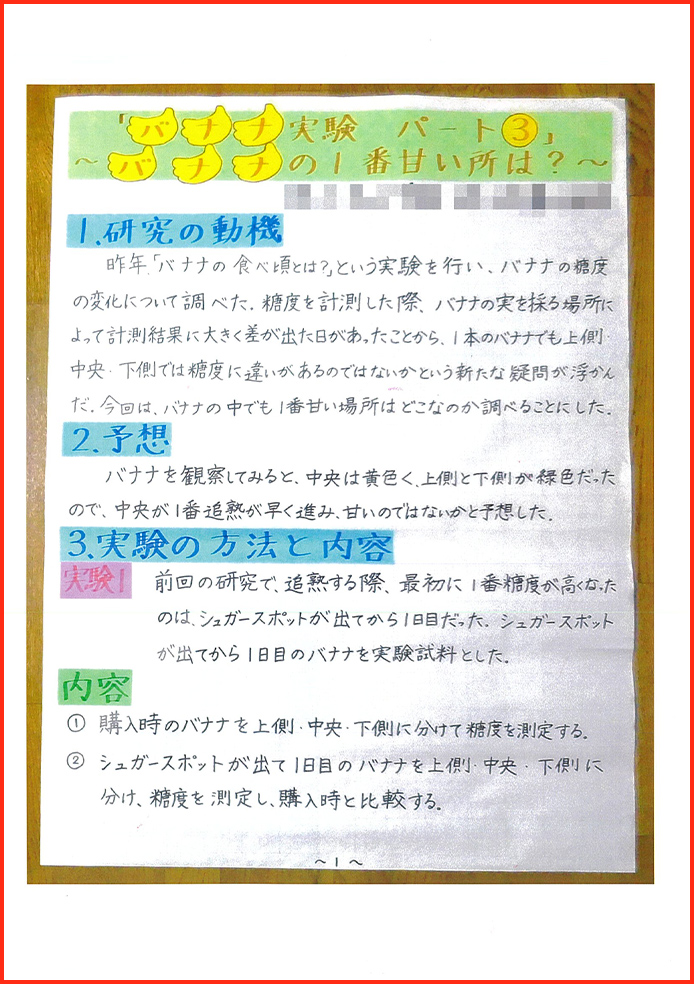 「バナナ実験 パート③」
～バナナの1番甘い所は？～
1.研究の動機
昨年、「バナナの食べ頃とは?」という実験を行い、バナナの糖度
の変化について調べた。糖度を計測した際、バナナの実を採る場所に
よって計測結果に大きく差が出た日があったことから、1本のバナナでも上側・
中央・下側では糖度に違いがあるのではないかという新たな疑問が浮かん
だ。今回は、バナナの中でも1番甘い場所はどこなのか調べることにした。
2.予想
バナナを観察してみると、中央は黄色く、上側と下側が緑色だった
ので、中央が1番追熟が早く進み、甘いのではないかと予想した。
3.実験の方法と内容
実験1 前回の研究で、追熟する際、最初に1番糖度が高くなった
のは、シュガースポットが出てから1日目だった。シュガースポット
が出てから1日目のバナナを実験試料とした。
内容
① 購入時のバナナを上側・中央・下側に分けて糖度を測定する。
② シュガースポットが出て1日目のバナナを上側・中央・下側に
分け、糖度を測定し、購入時と比較する。
～1～